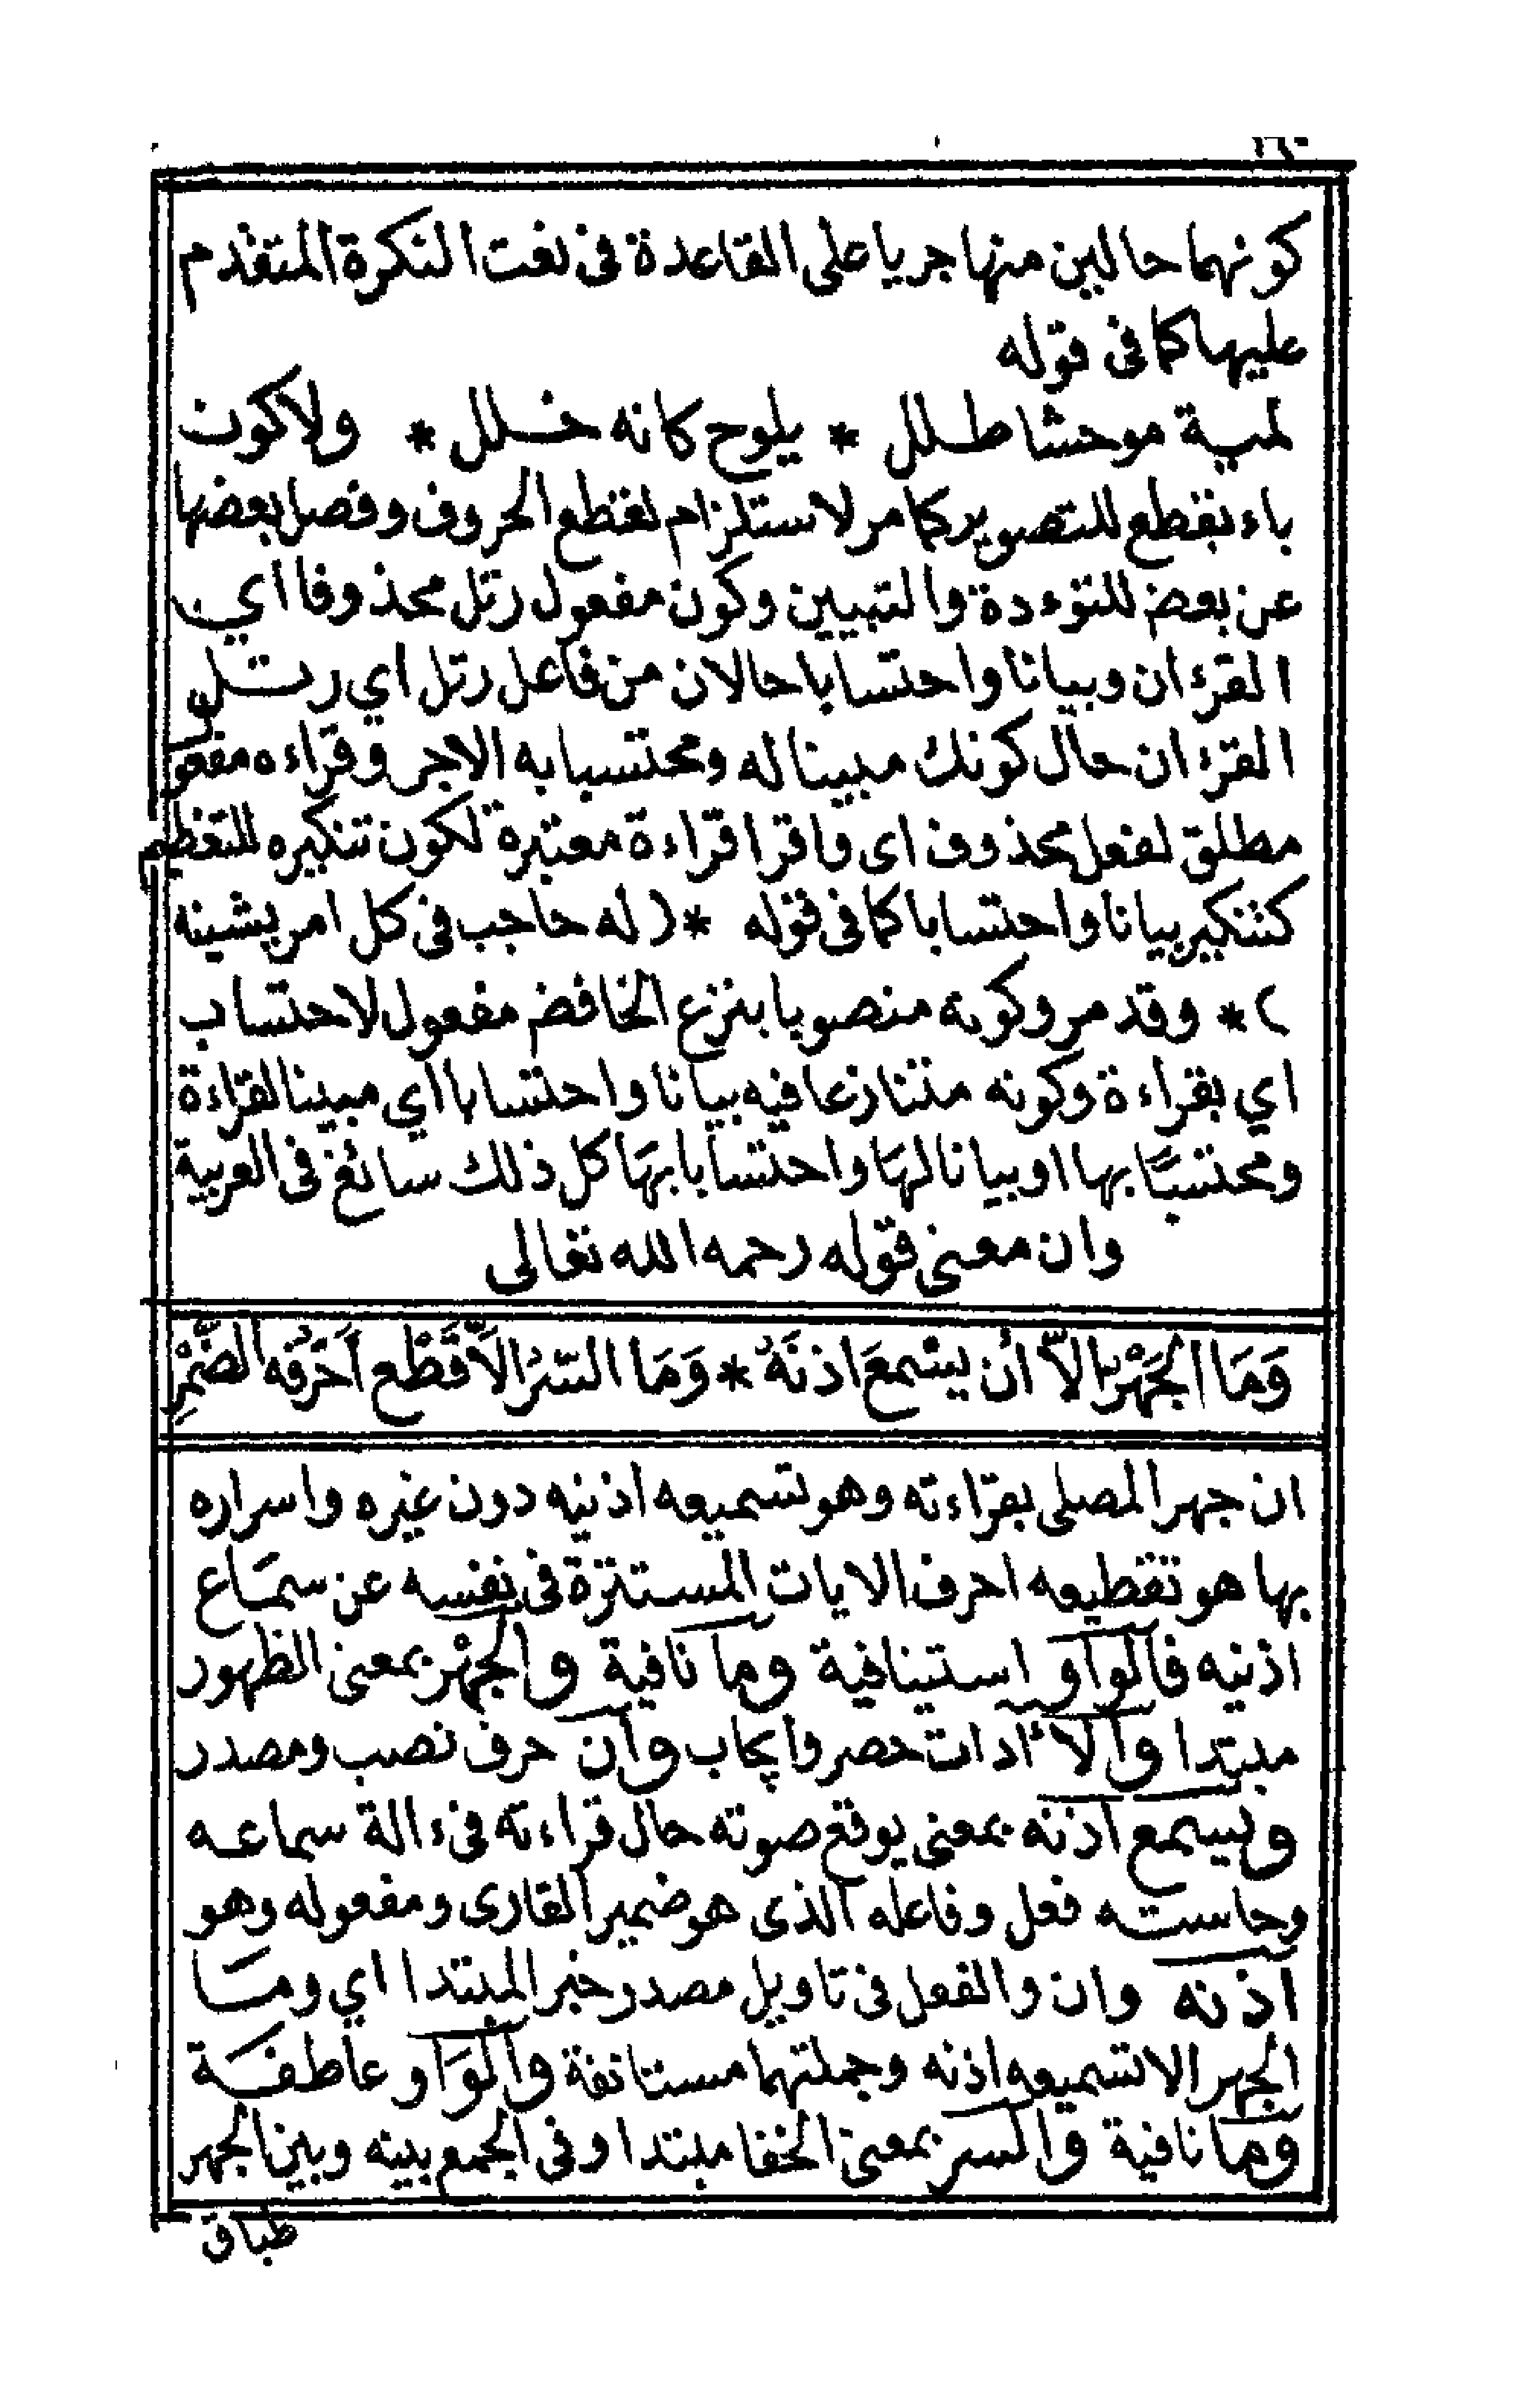 كونهما حالين منها جريا على القاعدة فى نعت النكرة المتقدم
عليها كما فى قوله
لمية موحشا طلل * يلوح كانه خلل * ولا كون
باء بقطع للتصوير كما مر لاستلزام لقطع الحروف وفصل بعضها
عن بعض للتوءدة والتبيين وكون مفعول رتل محذوفا اي
القرءان وبيانا واحتسابا حالان من فاعل رتل اي رتل
القرءان حال كونك مبينا له ومحتسبا به الاجر وقراءه مفعول
مطلق لفعل محذوف اى واقرا قراءة معتبرة لكون تنكيره للتعظيم
كتنكير بيانا واحتسابا كما فى قوله * (له حاجب فى كل امر يشينه
) * وقد مر وكونه منصوبا بنزع الخافض مفعول لاحتساب
اي بقراءة وكونه متنازعا فيه بيانا واحتسابا اي مبينا لقراءة
ومحتسبًا بها او بيانا لهَا واحتسابا بهَا كل ذلك سائغ فى العربية
وان معنى قوله رحمه الله تعالى
وَمَا الجَهْرُ الاّ أن يسْمعَ اذنَهُ * وَمَا السّرُ الاّ قَطْع اَحْرُفه الضُّمْرِ
ان جهر المصلى بقراءته وهو تسميعه اذنيه دون غيره واسراره
بها هو تقطيعه احرف الايات المستترة فى نفسه عن سمَاع
اذنيه فالواو استينافية وما نافية والجهْر بمعنى الظهور
مبتدا والا أدات حصر وايجاب وان حرف نصب ومصدر
ويسمع اذنه بمعنى يوقع صوته حال قراءته فى ءالة سماعه
وحاسته فعل وفاعله الذى هو ضمير القارى ومفعوله وهو
اذنه وان والفعل فى تاويل مصدر خبر المبتدا اي ومَا
الجهر الا تسميعه اذنه وجملتهما مستانفة والوَاو عاطفَة
وما نافية والسر بمعنى الخفا مبتدا وفى الجمع بينه وبين الجهر
طباق